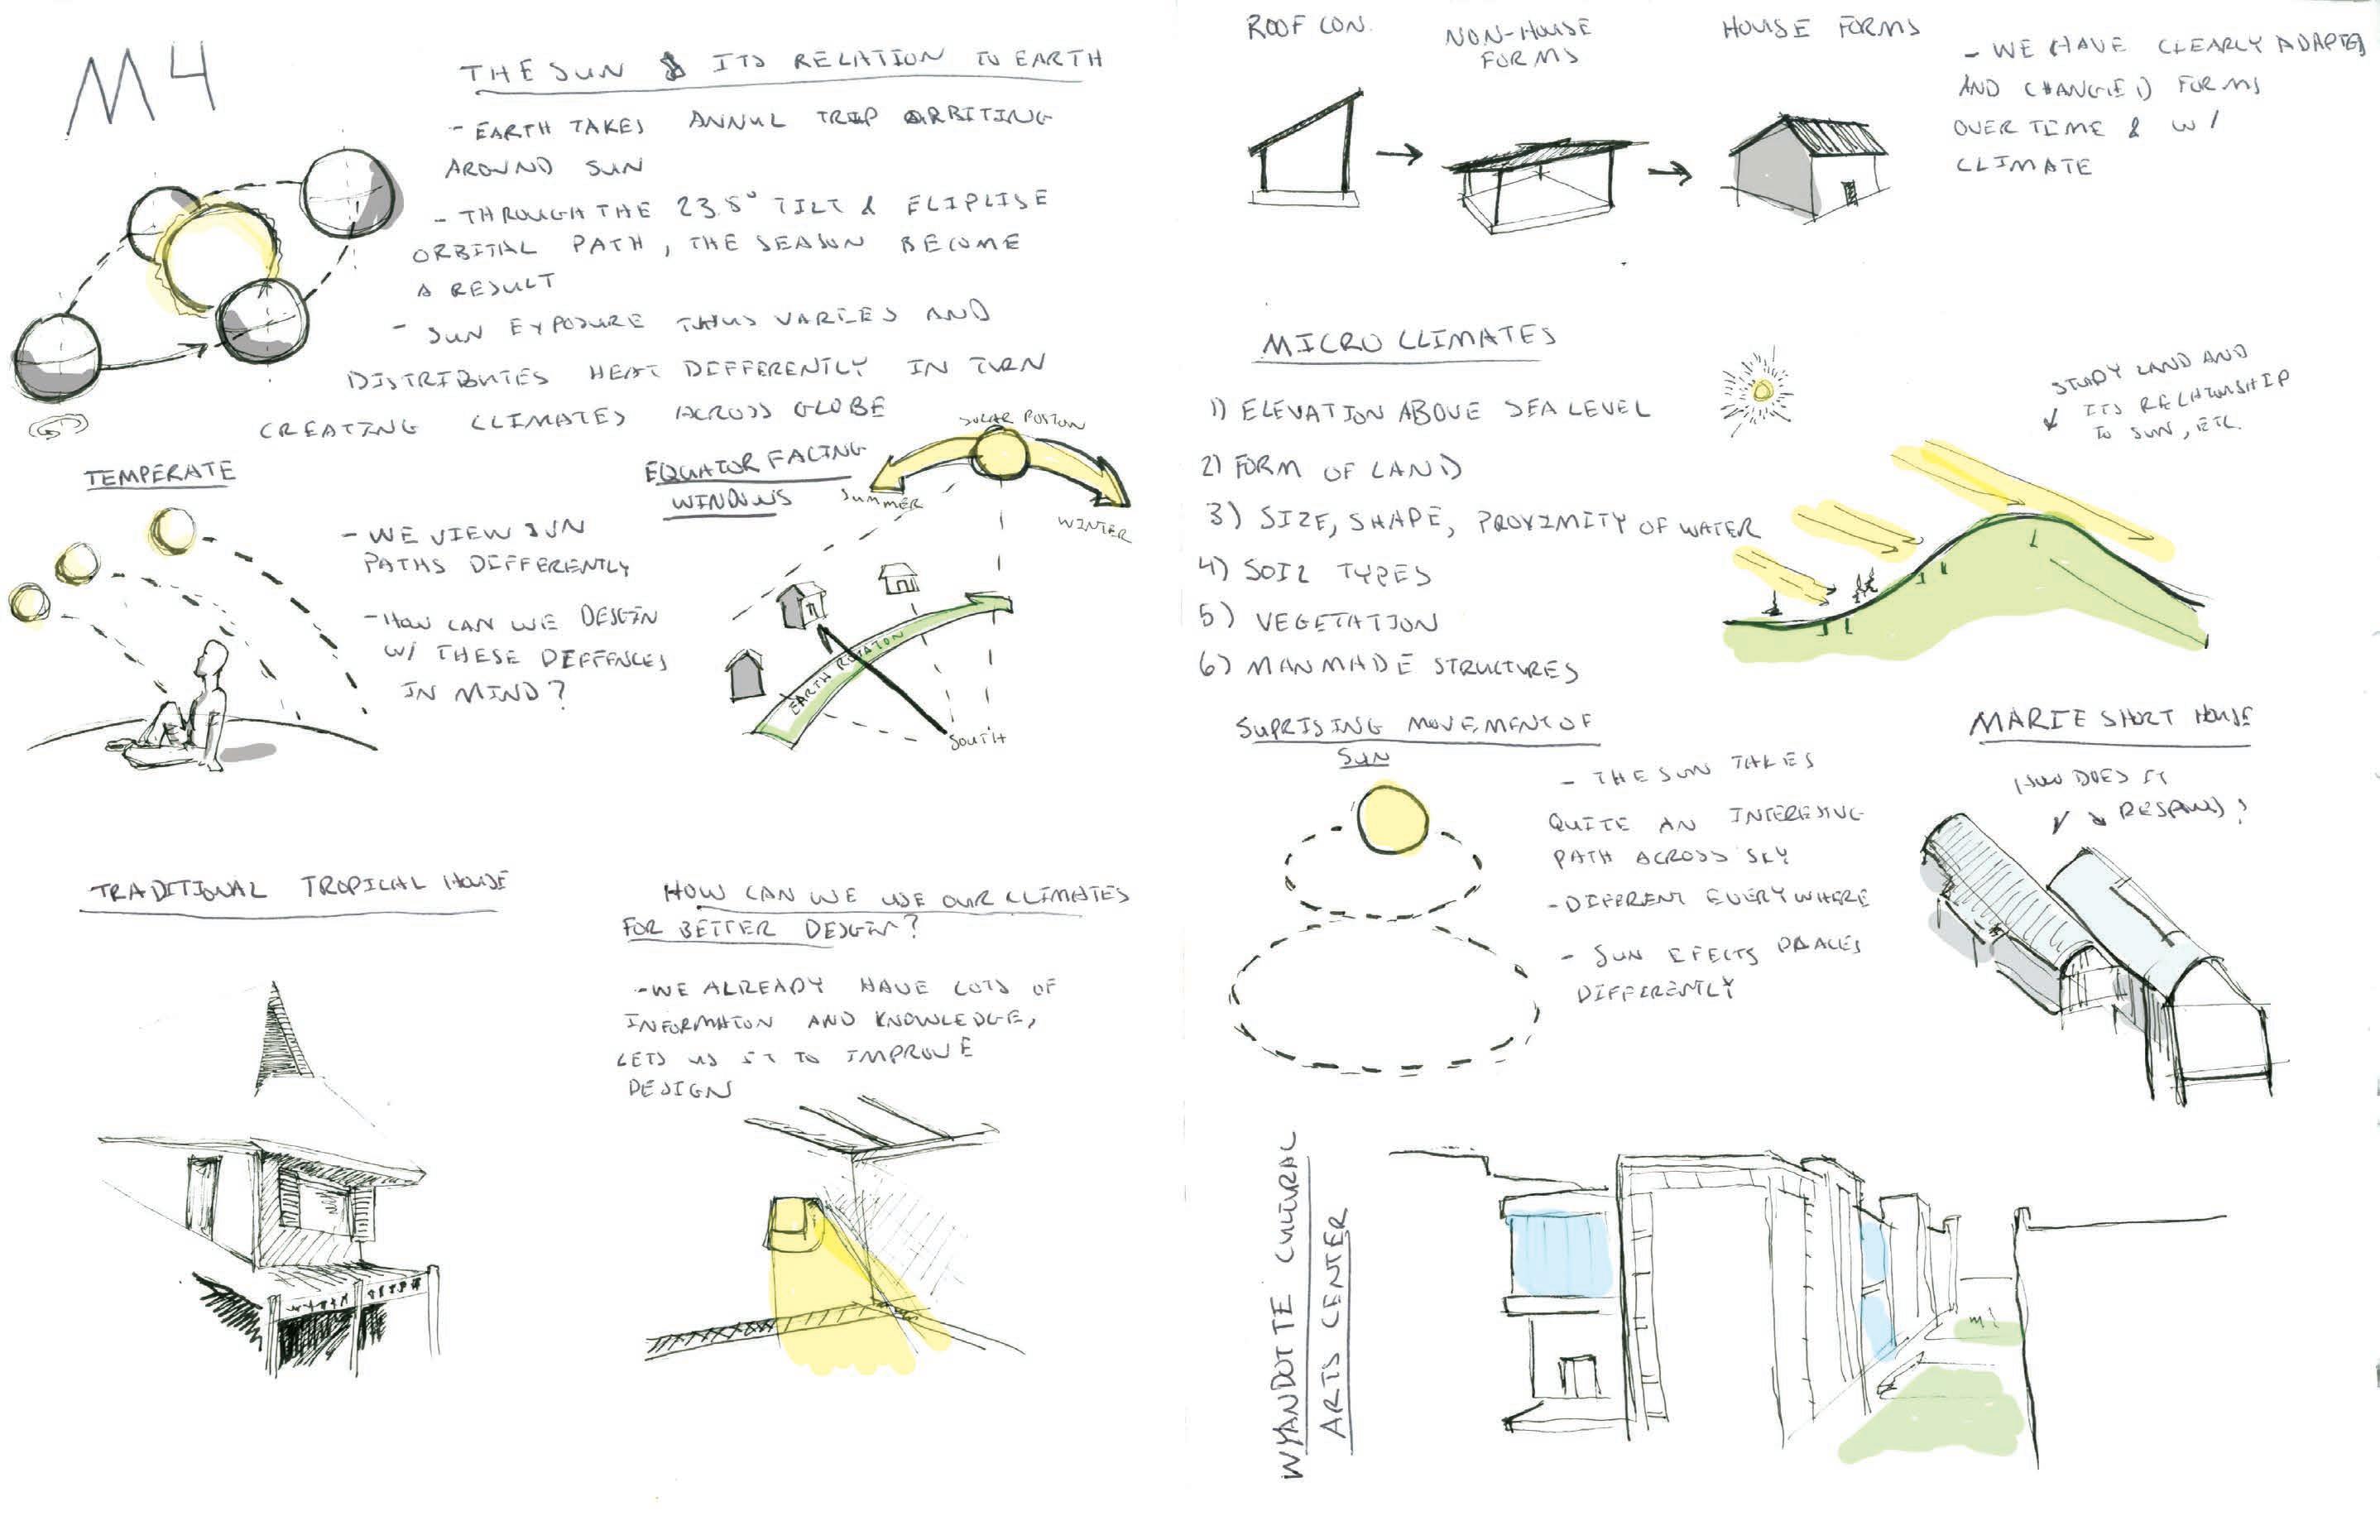 M4
THE SUN & ITS RELATION TO EARTH
- EARTH TAKES ANNUL TRIP ORBITING
AROUND SUN
- THROUGH THE 23.5° TILT & ELIPLISE
ORBITAL PATH, THE SEASON BECOME
A RESULT
- SUN EXPOSURE THUS VARIES AND
DISTRIBUTES HEAT DIFFERENTLY IN TURN
CREATING CLIMATES ACROSS GLOBE
TEMPERATE
- WE VIEW SUN
PATHS DIFFERENTLY
- HOW CAN WE DESIGN
W/ THESE DIFFENCES
IN MIND?
EQUATOR FACING
WINDOWS
SOLAR POSTION
SUMMER
WINTER
EARTH ROTATION
SOUTH
TRADITIONAL TROPICAL HOUSE
HOW CAN WE USE OUR CLIMATES
FOR BETTER DESIGN?
- WE ALREADY HAVE LOTS OF
INFORMATION AND KNOWLEDGE,
LETS US IT TO IMPROVE
DESIGN
ROOF CON.
NON-HOUSE
FORMS
HOUSE FORMS
- WE HAVE CLEARLY ADAPTED
AND CHANGED FORMS
OVER TIME & W/
CLIMATE
MICRO CLIMATES
1) ELEVATION ABOVE SEA LEVEL
2) FORM OF LAND
3) SIZE, SHAPE, PROXIMITY OF WATER
4) SOIL TYPES
5) VEGETATION
6) MANMADE STRUCTURES
STUDY LAND AND
ITS RELATIONSHIP
TO SUN, ETC.
SUPRISING MOVEMENT OF
SUN
- THE SUN TAKES
QUITE AN INTERESING
PATH ACROSS SKY
- DIFFERENT EVERYWHERE
- SUN EFECTS PLACES
DIFFERENTLY
MARIE SHORT HOUSE
HOW DOES IT
RESPOND?
WYANDOTTE CULTURAL
ARTS CENTER